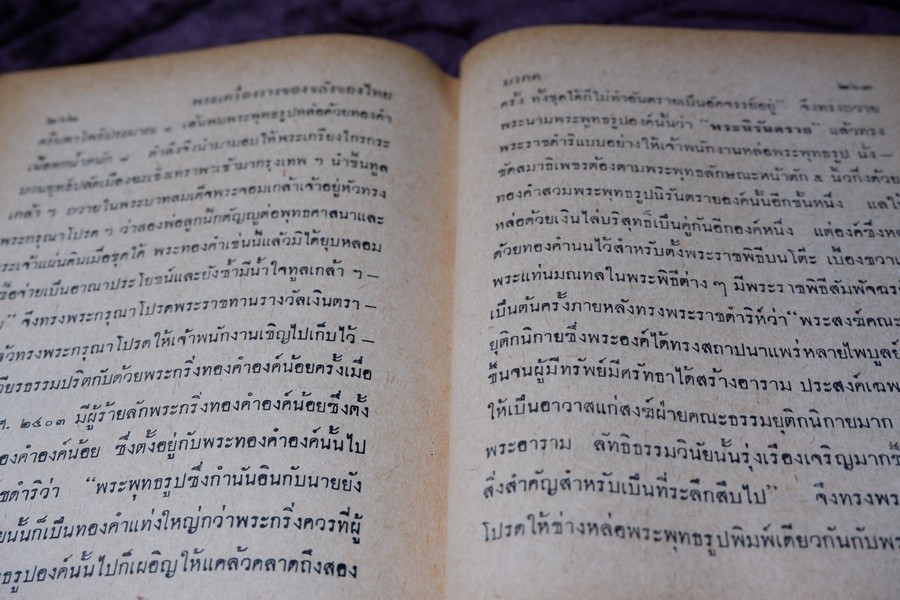 พระเครื่องรางของขลังของไทย
เดินพบพระพุทธรูปหล่อด้วยทองคำ
ตำลึงจึงนำมามอบให้พระเกรียงไกรกระ
เมืองฉะเชิงเทราพาเข้ามากรุงเทพ ฯ นำขึ้นทูล
เกล้า ฯ ถวายในพระบาทสมเด็จพระจอมเกล้าเจ้าอยู่หัวทรง
พระกรุณาโปรด ฯ ว่าสองพ่อลูกนี้กตัญญูต่อพุทธศาสนาและ
พระเจ้าแผ่นดินเมื่อขุดได้ พระทองคำเช่นนี้แล้วมิได้ยุบหลอม
ซื้อจ่ายเป็นอาณาประโยชน์และยังซ้ำมีน้ำใจทูลเกล้า ฯ –
” จึงทรงพระกรุณาโปรดพระราชทานรางวัลเงินตรา –
แล้วทรงพระกรุณาโปรดให้เจ้าพนักงานเชิญไปเก็บไว้ –
เฐียรธรรมปริตกับด้วยพระกริ่งทองคำองค์น้อยครั้งเมื่อ
ศ. ๒๔๐๓ มีผู้ร้ายลักพระกริ่งทองคำองค์น้อยซึ่งตั้ง
องคำองค์น้อย ซึ่งตั้งอยู่กับพระทองคำองค์นั้นไป
ชดำริว่า “พระพุทธรูปซึ่งกำนันอินกับนายยัง
ยนั้นก็เป็นทองคำแท่งใหญ่กว่าพระกริ่งควรที่ผู้
ธรูปองค์นั้นไปก็เผอิญให้แคล้วคลาดถึงสอง
มรกต
ครั้ง ทั้งขุดได้ก็ไม่ทำอันตรายเป็นอัศจรรย์อยู่” จึงทรงถวาย
พระนามพระพุทธรูปองค์นั้นว่า “พระนิรันตราย” แล้วทรง
พระราชดำริแบบอย่างให้เจ้าพนักงานหล่อพระพุทธรูป นั่ง –
ขัดสมาธิเพชรต้องตามพระพุทธลักษณะหน้าตัก ๕ นิ้วกึ่งด้วย
ทองคำสวมพระพุทธรูปนิรันตรายองค์นั้นอีกชั้นหนึ่ง แลให้
หล่อด้วยเงินไล่บริสุทธิ์เป็นคู่กันอีกองค์หนึ่ง แต่องค์ซึ่งหล
ด้วยทองคำนนไว้สำหรับตั้งพระราชพิธีบนโต๊ะ เบื้องขวาแ
พระแท่นมณฑลในพระพิธีต่าง ๆ มีพระราชพิธีสัมพัจฉร
เป็นต้นครั้งภายหลังทรงพระราชดำริห์ว่า “พระสงฆ์คณะ
ยุติกนิกายซึ่งพระองค์ได้ทรงสถาปนาแพร่หลายไพบูลย์
ขึ้นจนผู้มีทรัพย์มีศรัทธาได้สร้างอาราม ประสงค์เฉพ
ให้เป็นอาวาสแก่สงฆ์ฝ่ายคณะธรรมยุติกนิกายมาก
พระอาราม ลัทธิธรรมวินัยนั้นรุ่งเรืองเจริญมากขึ้
สิ่งสำคัญสำหรับเป็นที่ระลึกสืบไป” จึงทรงพระ
โปรดให้ช่างหล่อพระพุทธรูปพิมพ์เดียวกันกับพร